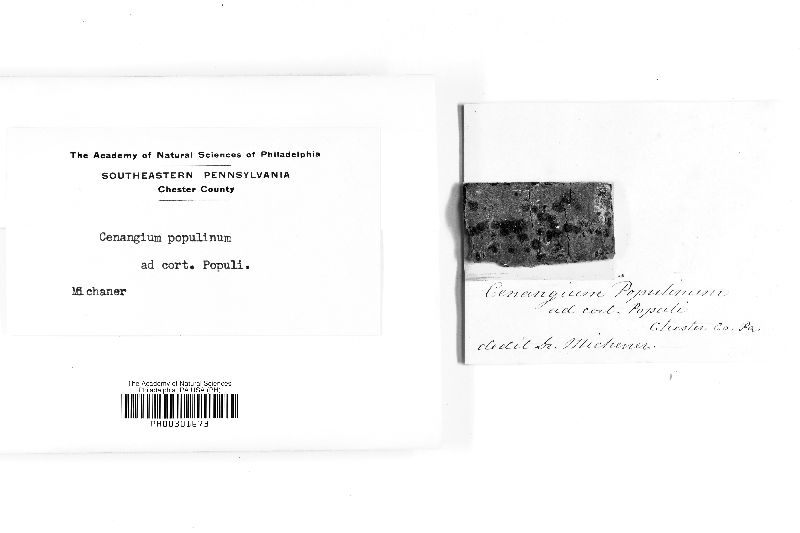 The Academy of Natural Sciences of Philadelphia
SOUTHEASTERN PENNSYLVANIA
Chester County
Cenangium populinum
ad cort. Populi.
Michaner
The Academy of Natural Sciences
Philadelphia, PA USA (PH)
PH00301673
Cenangium Populinum
ad cort. Populi
Chester Co. Pa.
dedit Dr. Michener.